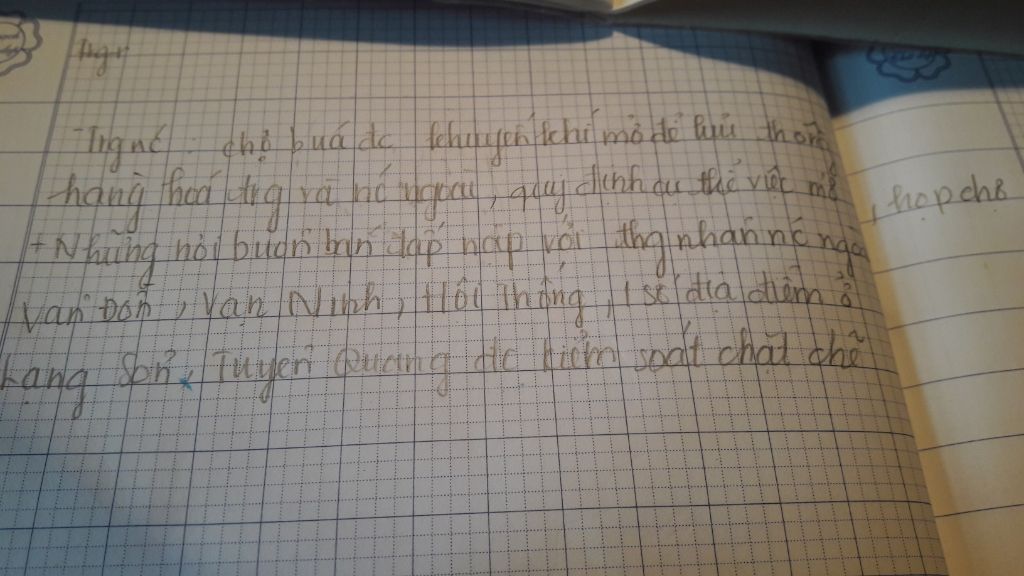 Trg nc chợ búa đc khuyến khí mở để lưu thông
hàng hoá trg và nc ngoài, quy định cụ thể việc mở, họp chợ
+ Những nơi buôn bán tấp nập với thg nhân nc ngoà
Vân Đồn, Vạn Ninh, Hội Thống, 1 số địa điểm ở
Lạng Sơn, Tuyên Quang đc kiểm soát chặt chẽ